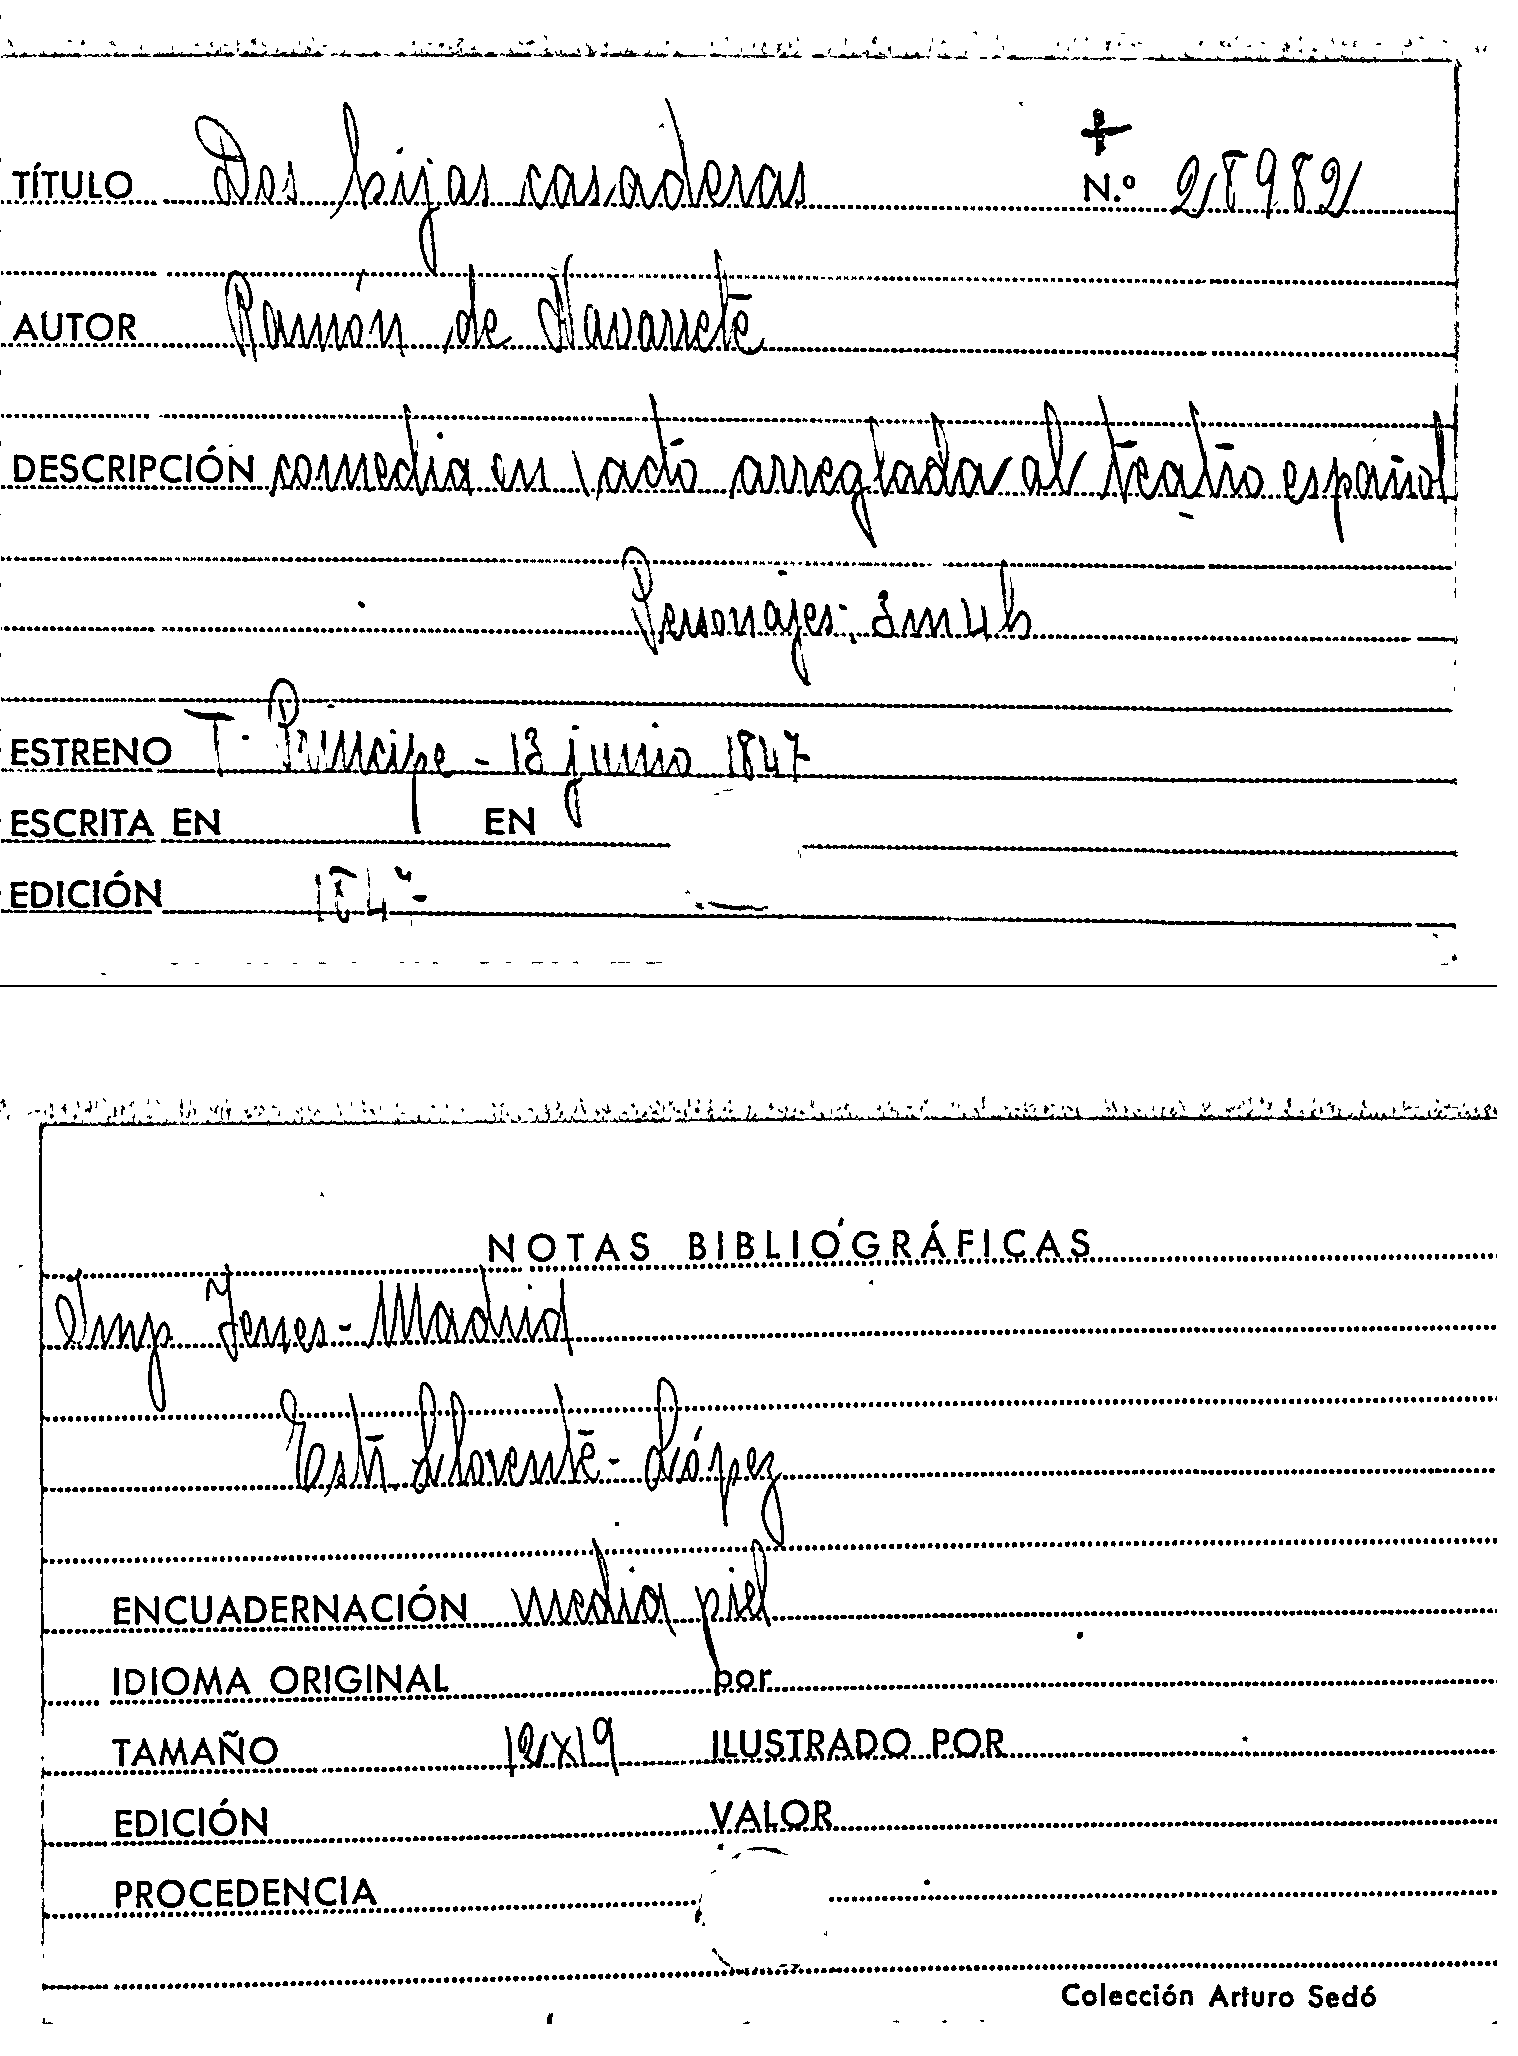 TÍTULO Dos hijas casaderas N.º 28982
AUTOR Ramón de Navarrete
DESCRIPCIÓN comedia en 1 acto arreglada al teatro español
Personajes: 3m 4h
ESTRENO T. Príncipe - 13 junio 1847
ESCRITA EN EN
EDICIÓN
NOTAS BIBLIOGRÁFICAS
Imp Yenes - Madrid
Llorente - López
ENCUADERNACIÓN media piel
IDIOMA ORIGINAL por
TAMAÑO 12x19 ILUSTRADO POR
EDICIÓN VALOR
PROCEDENCIA
Colección Arturo Sedó